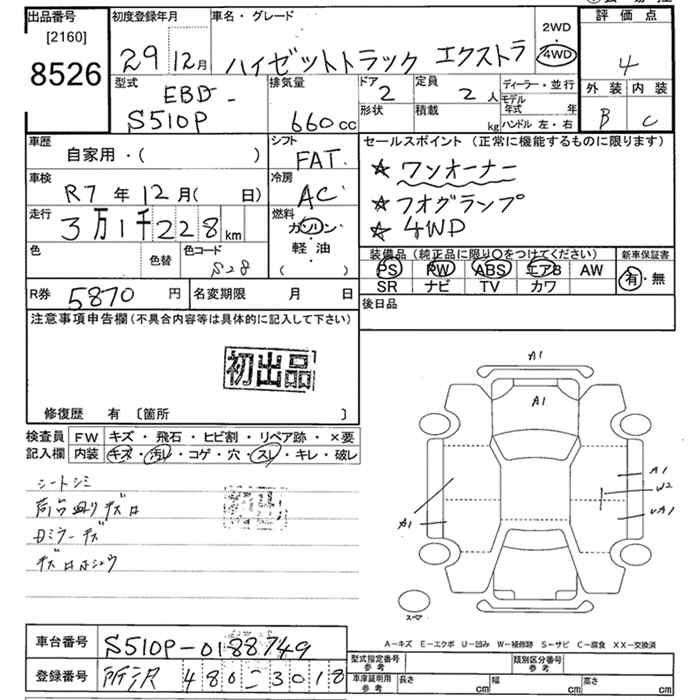 出品番号 初度登録年月 車名・グレード 2WD 評価点
[2160] 29 12月 ハイゼットトラック エクストラ 4WD 4
8526 型式 排気量 ドア 定員 ディーラー・並行 外装 内装
EBD- 2 2人 モデル年式 年 B C
S510P 660cc 形状 積載 kg ハンドル 左・右
車歴 シフト セールスポイント (正常に機能するものに限ります)
自家用・( ) FAT
車検 冷房 ★ワンオーナー
R7年12月( 日) AC ★フオグランプ
走行 燃料 ★4WD
3万1千228km ガソリン
色 色替 色コード 軽油 装備品 (純正品に限り〇をつけてください) 新車保証書
S28 ( ) PS PW ABS エアB AW 有・無
SR ナビ TV カワ
R券 5870円 名変期限 月 日 後日品
注意事項申告欄(不具合内容等は具体的に記入して下さい)
初出品
修復歴 有 〔箇所 〕
検査員 FW キズ・飛石・ヒビ割・リペア跡・×要
記入欄 内装 キズ・汚レ・コゲ・穴・スレ・キレ・破レ
シートシミ
荷台廻りキズ
ミラーキズ
A1
A1
A1
W2
UA1
A1
スペア
A-キズ E-エクボ U-凹み W-補修跡 S-サビ C-腐食 XX-交換済
車台番号 S510P-0188749
登録番号 所沢 480 こ 3018
型式指定番号 参考 類別区分番号 参考
車庫証明用 参考 長さ cm 幅 cm 高さ cm